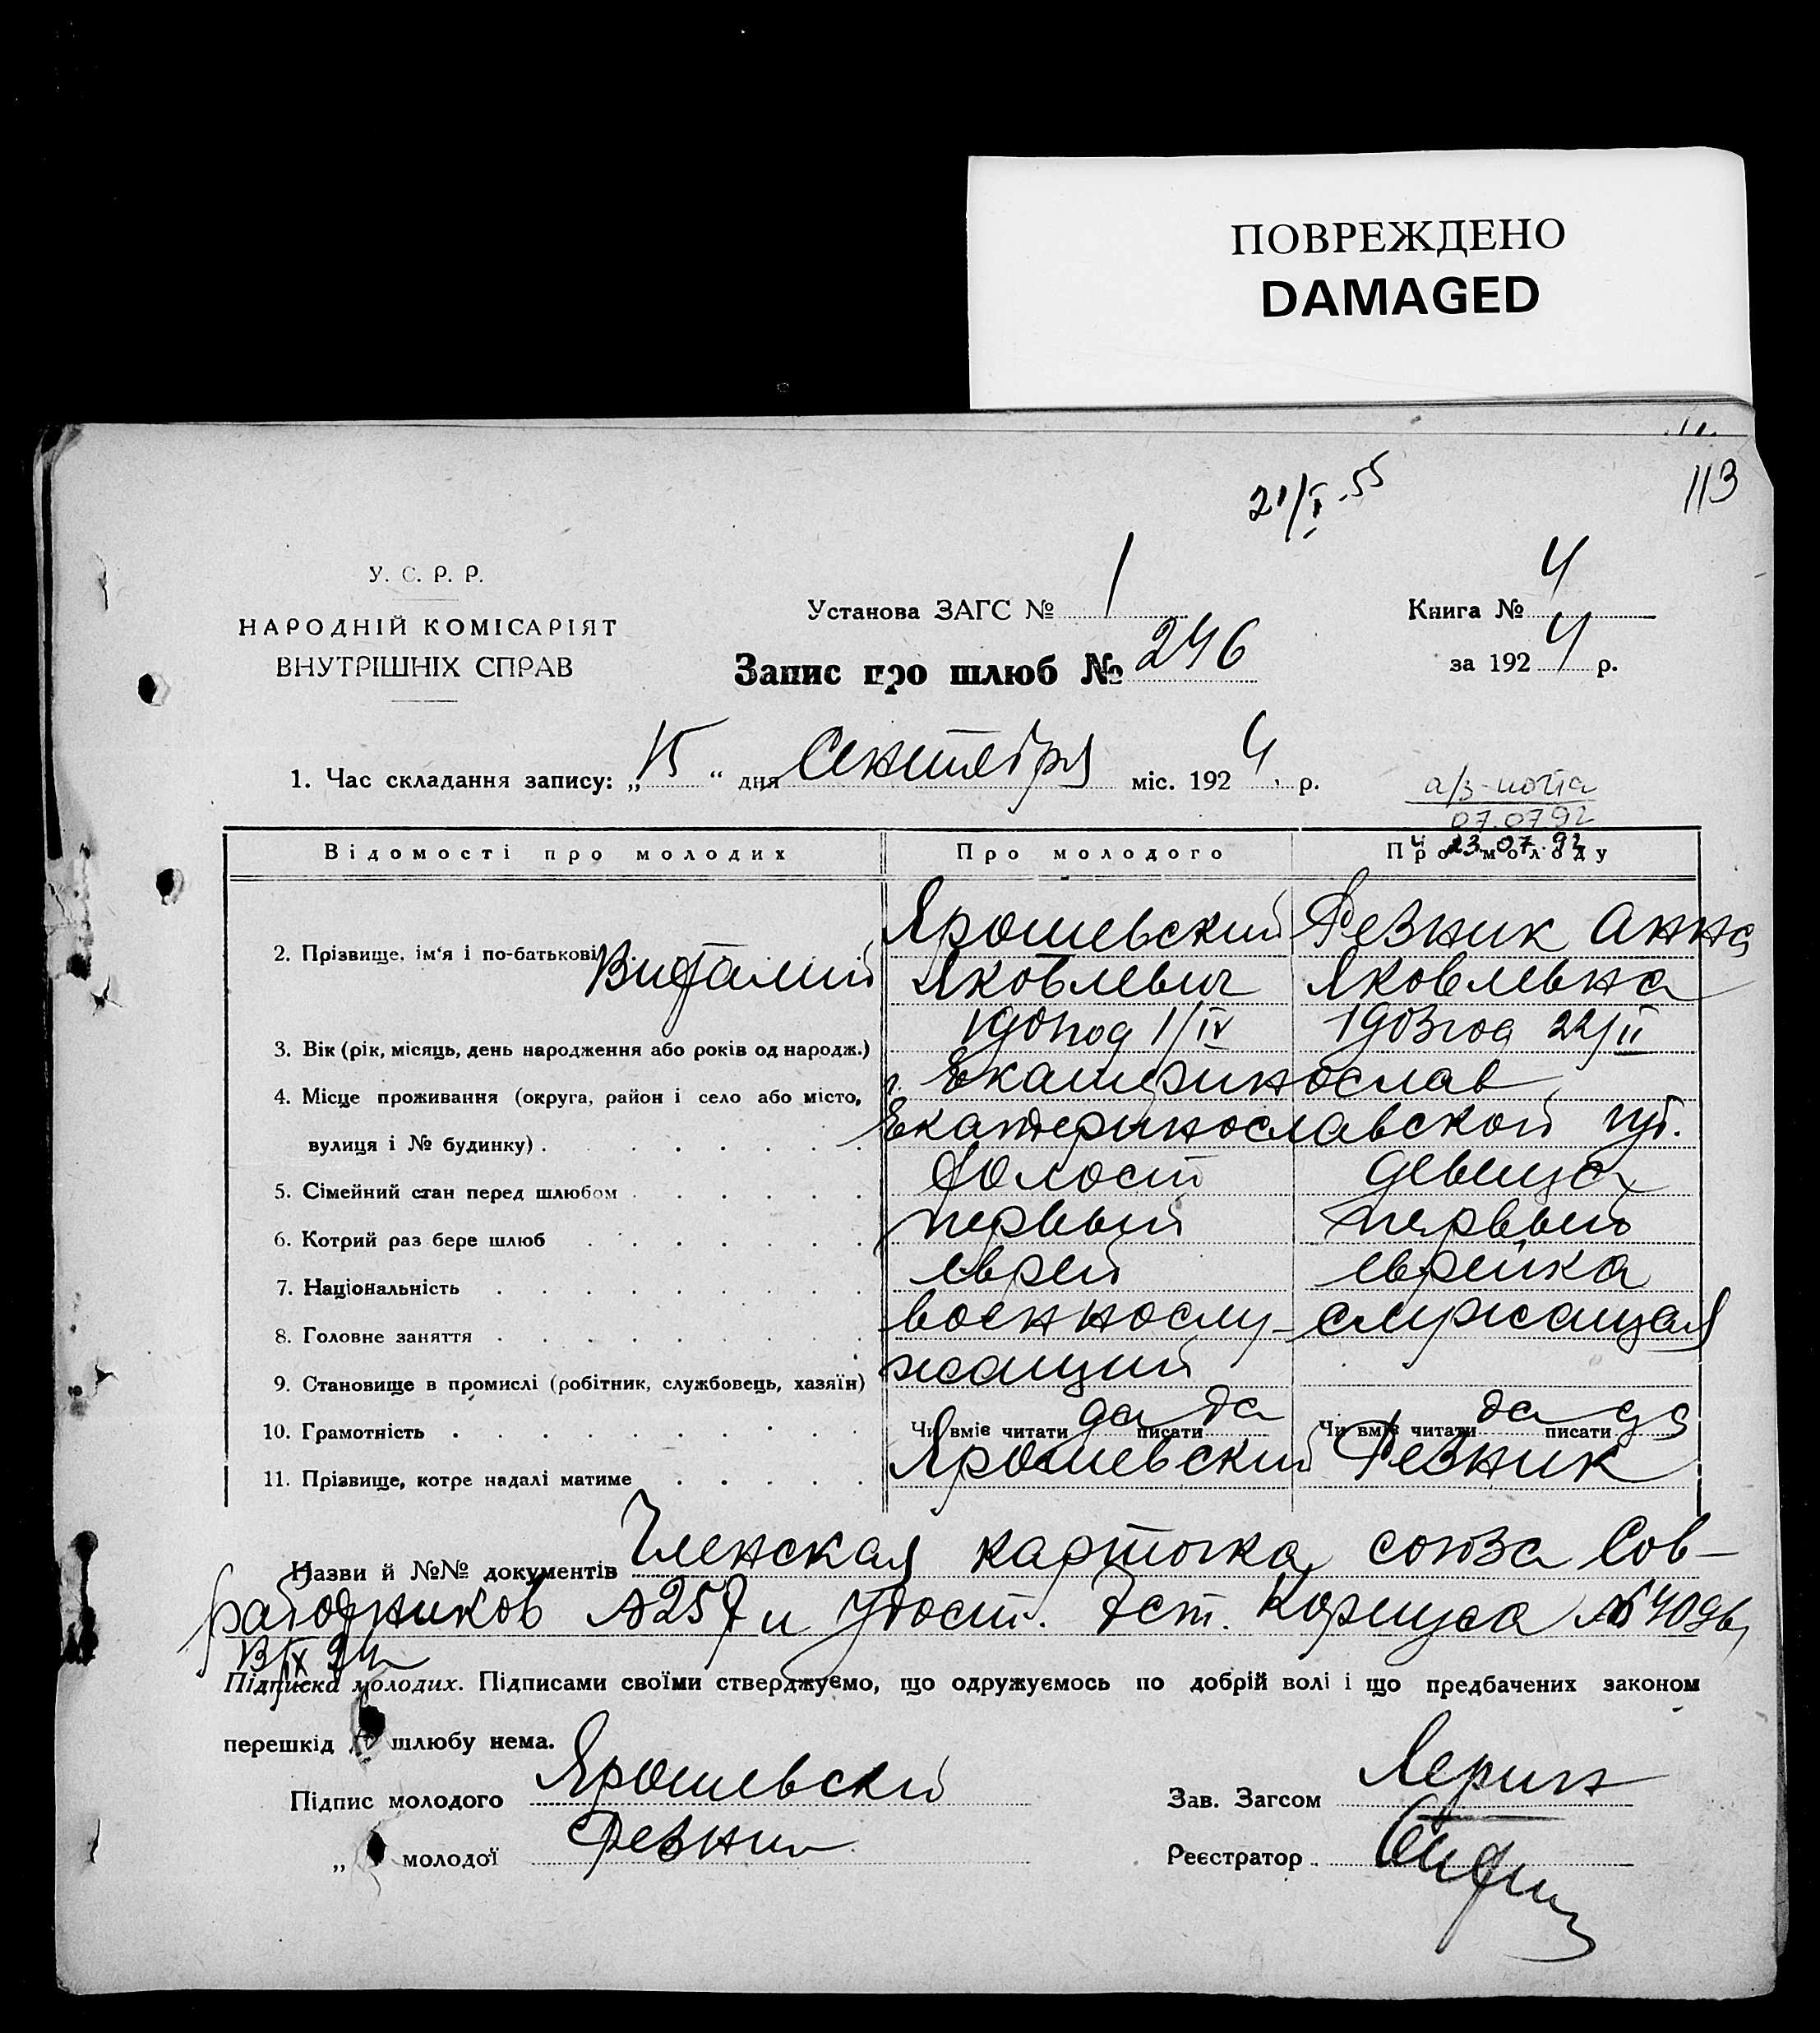 ПОВРЕЖДЕНО
DAMAGED
113
21/I-55
У. С. Р. Р.
НАРОДНІЙ КОМІСАРІЯТ
ВНУТРІШНІХ СПРАВ
Установа ЗАГС № 1
Книга № 4
Запис про шлюб № 246
за 1924 р.
1. Час складання запису: „15“ дня Сентября міс. 1924 р.
07.07.92
23.07.92
Відомості про молодих Про молодого Про молоду
2. Прізвище, ім'я і по-батькові Виталий Ярошевский Резник Анна
Яковлевич Яковлевна
3. Вік (рік, місяць, день народження або років од народж.) год 1/IV 1903 год 22/II
4. Місце проживання (округа, район і село або місто, г. Екатеринослав
вулиця і № будинку) Екатеринославской губ.
5. Сімейний стан перед шлюбом холост девица
6. Котрий раз бере шлюб первый первый
7. Національність еврей еврейка
8. Головне заняття военнослу- служащая
9. Становище в промислі (робітник, службовець, хазяїн) жащий
10. Грамотність Чи вміє читати да писати да Чи вміє читати да писати да
11. Прізвище, котре надалі матиме Ярошевский Резник
Назви й №№ документів Членская карточка союза Сов-
работников №257 и Удост. Корпуса
Підписка молодих. Підписами своїми стверджуємо, що одружуємось по добрій волі і що предбачених законом
перешкід до шлюбу нема.
Підпис молодого Ярошевский
Зав. Загсом
„ молодої Резник
Реєстратор